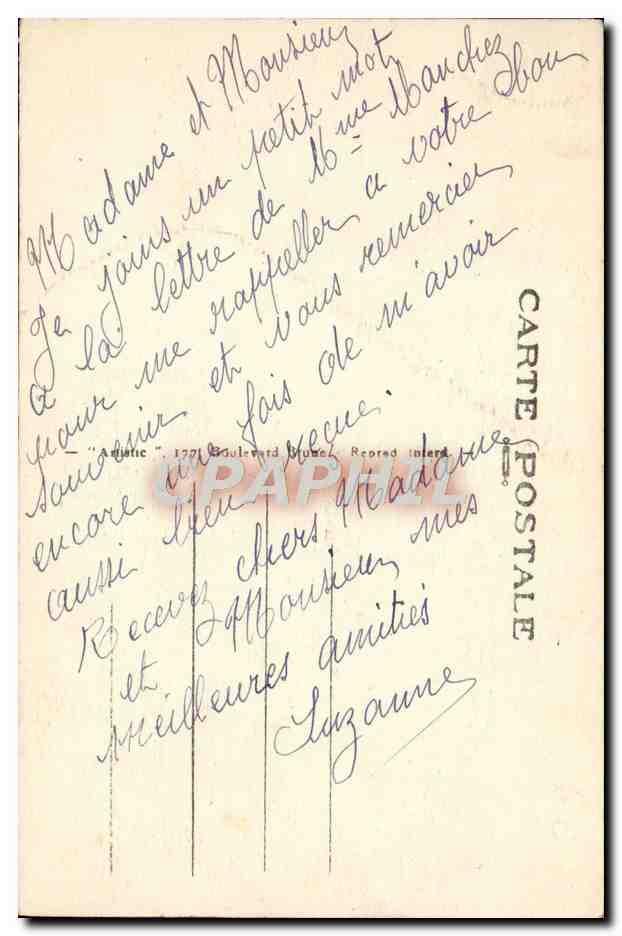 Madame et Monsieur
Je joins un petit mot
a la lettre de Mme Manchez
pour me rappeller a votre bon
souvenir et vous remercier
encore une fois de m'avoir
aussi bien reçue.
Recevez chers Madame
et Monsieur mes
meilleures amitiés
Suzanne
CARTE POSTALE
"Artistic", Boulevard Reprod interd.
CPAPHIL